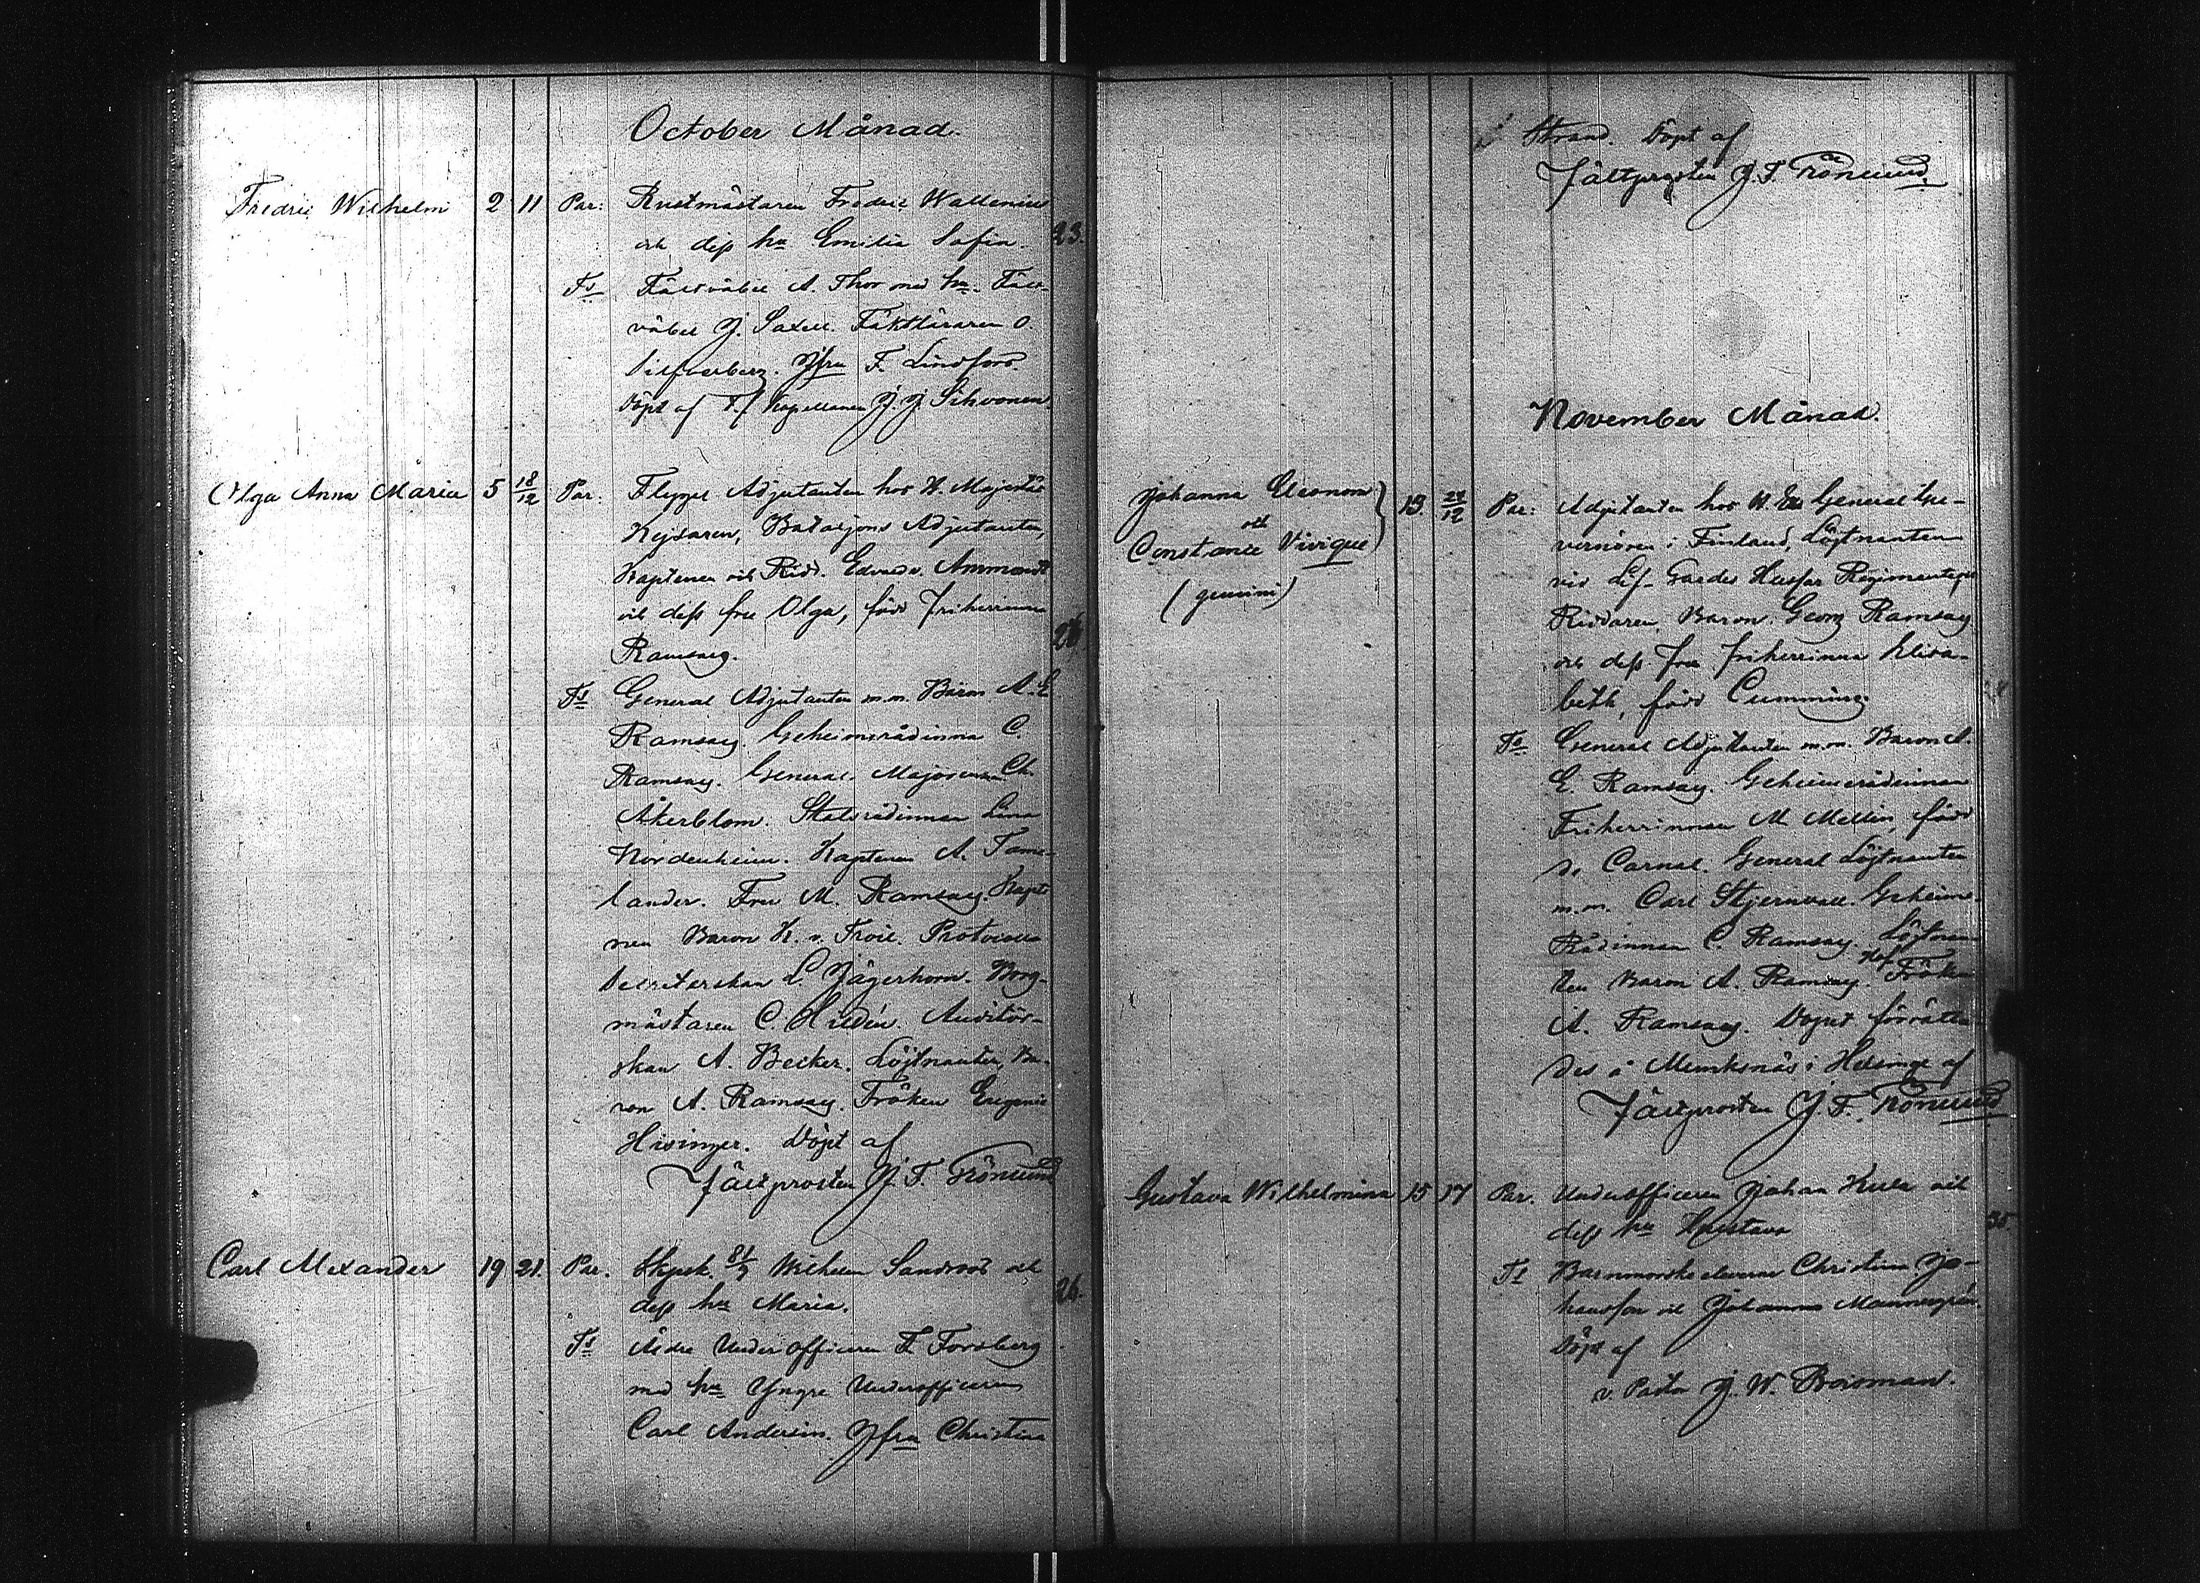 October Månad.
Fredric Wilhelm 2 11 Par: Rustmästaren Fredric Wallenius
och dess hu Emilia Sofia. 23.
Ts Fältväbel A. Thor med hu. Fält-
väbel J. Saxell. Fäktläraren O.
Silfverberg. Jfru F. Lindfors.
Döpt af T.f Kapellanen J. J. Sihvonen.
Olga Anna Maria 5 18/12 Par. Flygel Adjutanten hos H. Majestät
Kejsaren, Bataljons Adjutanten,
Kaptenen och Ridd. Edvard Ammondt
och dess fru Olga, född friherrinna
Ramsay. 26
Ts General Adjutanten m.m. Baron A. E
Ramsay. Geheimerådinna C.
Ramsay. General Majorskan Ch.
Åkerblom. Statsrådinnan Lina
Nordenheim. Kaptenen A. Tame-
lander. Fru M. Ramsay. Kapte
nen Baron H. v. Troil. Protocolls
Secreterskan L. Jägerhorn. Borg-
mästaren C. Hildén. Auditör-
skan A. Becker. Löjtnanten, Ba-
ron A. Ramsay. Fröken Eugenie
Hisinger. Döpt af
Fältprosten J. F. Trönlund
Carl Alexander 19 21. Par. Skpsk. 81/9 Wilhelm Sandroos och
dess hu Maria. 26.
Ts Äldre Underofficeren F. Forsberg
med hu Yngre Underofficeren
Carl Andersin. Jfru Christina
Strand. Döpt af
Fältprosten J. F. Trönlund.
November Månad.
Johanna Eleonora
och
Constance Vivique
(gemini)
13 27/12 Par: Adjutanten hos H. Ex General Gu-
vernören i Finland, Löjtnanten
vid Lif-Gardes Husar Regimentet,
Riddaren, Baron Georg Ramsay
och dess fru friherrinna Elisa-
beth, född Cumming.
Ts General Adjutanten m.m. Baron A.
E. Ramsay. Geheimerådinnan
Friherrinnan M. Mellin, född
de Carnal. General Löjtnanten
m.m. Carl Stjernvall. Geheim-
Rådinnan C. Ramsay. Löjtnan-
ten Baron A. Ramsay. Hof Fröken
A. Ramsay. Döpet förrätta-
des å Munksnäs i Helsinge af
Fältprosten J. F. Trönlund
Gustava Wilhelmina 15 17 Par. Underofficeren Johan Kula och
dess hu Gustava 35.
Ts Barnmorske eleverne Christina Jo-
hansson och Johanna Mannergrén.
Döpt af
v. Pastor J. W. Boisman.